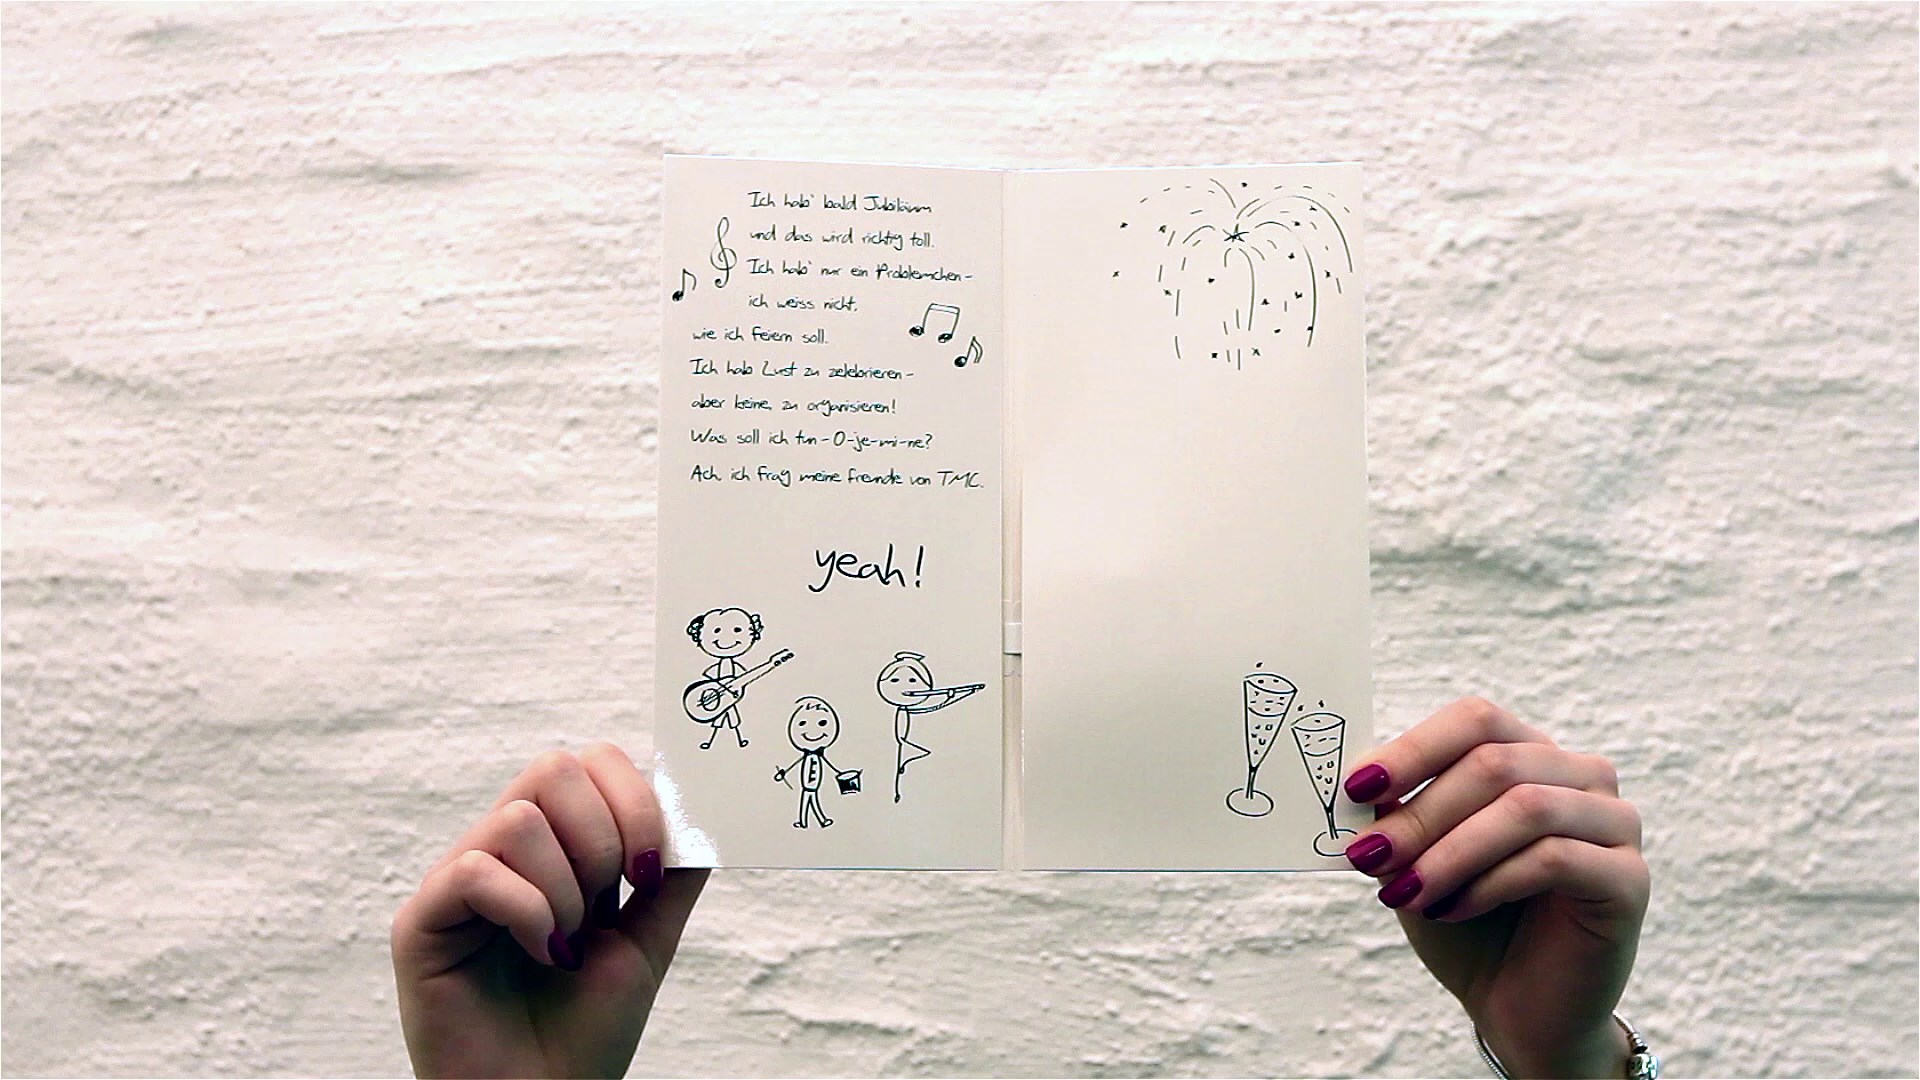 Ich hab' bald Jubiläum
und das wird richtig toll.
Ich hab' nur ein Problemchen-
ich weiss nicht,
wie ich feiern soll.
Ich hab Lust zu zelebrieren-
aber keine, zu organisieren!
Was soll ich tun-O-je-mi-ne?
Ach, ich frag meine Freunde von TMC.
yeah!